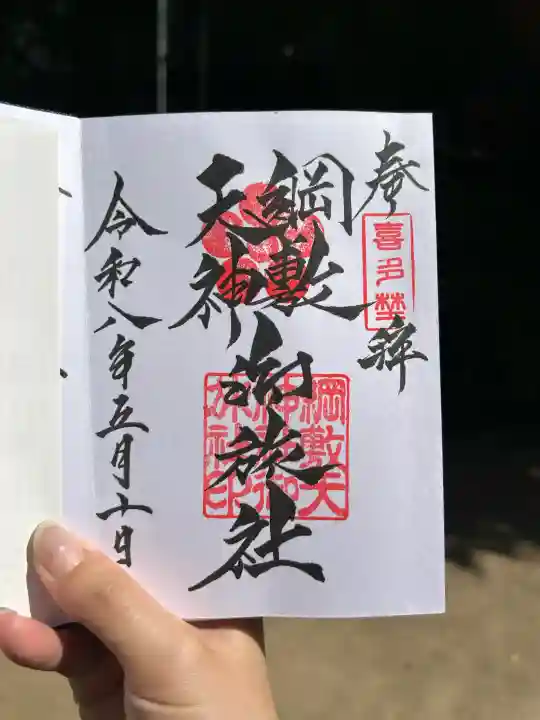 奉拝
喜多埜
綱敷
天神
御旅社
綱敷天
神社御
旅社印
令和八年五月十日